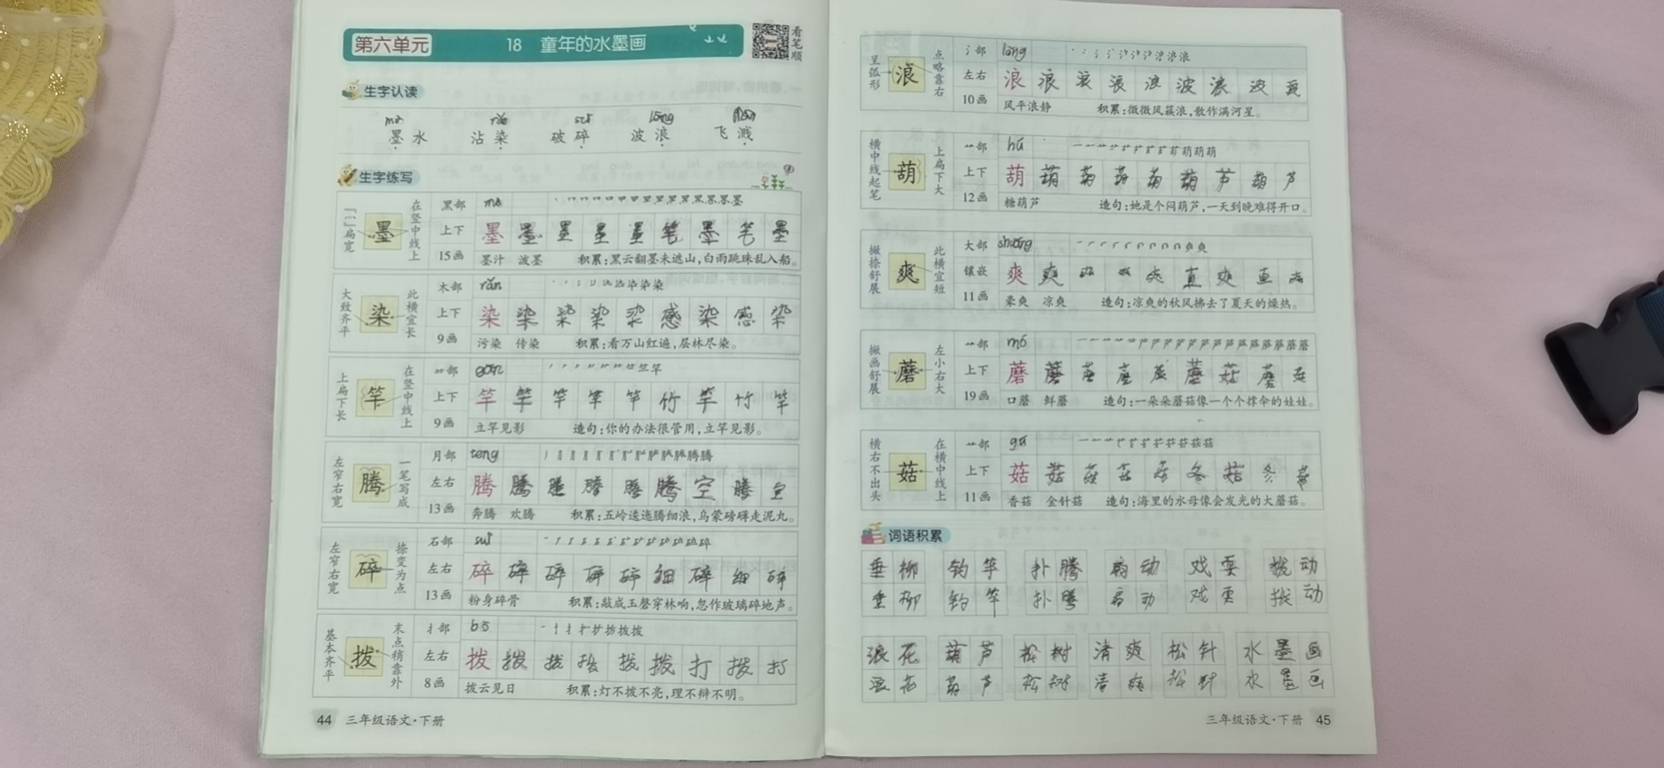 第六单元
18 童年的水墨画
看笔顺
生字认读
墨水 沾染 破碎 波浪 飞溅
生字练写
「二」扁宽 墨 在竖中线上
黑部 mò
上下 墨
15画 墨汁 泼墨 积累:黑云翻墨未遮山,白雨跳珠乱入船。
大致齐平 染 此横宜长
木部 rǎn
上下 染 染 染 染 染 感 染 感 染
9画 污染 传染 积累:看万山红遍,层林尽染。
上扁下长 竿 在竖中线上
⺮部 gān
上下 竿 竿 竿 竿 竿 竹 竿 竹 竿
9画 立竿见影 造句:你的办法很管用,立竿见影。
左窄右宽 腾 一笔写成
月部 teng
左右 腾 腾 腾 腾 腾 腾 空 腾 空
13画 奔腾 欢腾 积累:五岭逶迤腾细浪,乌蒙磅礴走泥丸。
左窄右宽 碎 捺变为点
石部 suì
左右 碎 碎 碎 碎 碎 细 碎 细 碎
13画 粉身碎骨 积累:敲成玉磬穿林响,忽作玻璃碎地声。
基本齐平 拨 末点稍靠外
扌部 bō
左右 拨 拨 拨 拨 拨 拨 打 拨 打
8画 拨云见日 积累:灯不拨不亮,理不辩不明。
44 三年级语文·下册
呈弧形 浪 点略靠右
氵部 làng
左右 浪 浪 浪 浪 浪 波 浪 波 浪
10画 风平浪静 积累:微微风簇浪,散作满河星。
横中线起笔 葫 上扁下大
艹部 hú
上下 葫 葫 葫 葫 葫 葫 芦 葫 芦
12画 糖葫芦 造句:她是个闷葫芦,一天到晚难得开口。
撇捺舒展 爽 此横宜短
大部 shuǎng
镶嵌 爽 爽
11画 豪爽 凉爽 造句:凉爽的秋风拂去了夏天的燥热。
撇画舒展 蘑 左小右大
艹部 mó
上下 蘑 蘑 蘑 蘑 蘑 蘑 菇 蘑 菇
19画 口蘑 鲜蘑 造句:一朵朵蘑菇像一个个撑伞的娃娃。
横右不出头 菇 在横中线上
艹部 gū
上下 菇 菇 菇 菇 菇 冬 菇 冬 菇
11画 香菇 金针菇 造句:海里的水母像会发光的大蘑菇。
词语积累
垂柳 钓竿 扑腾 戏耍
垂柳 钓竿 扑腾
浪花 葫芦 松树 清爽 松针 水墨画
浪花 葫芦 松树 清爽 松针 水墨画
三年级语文·下册 45